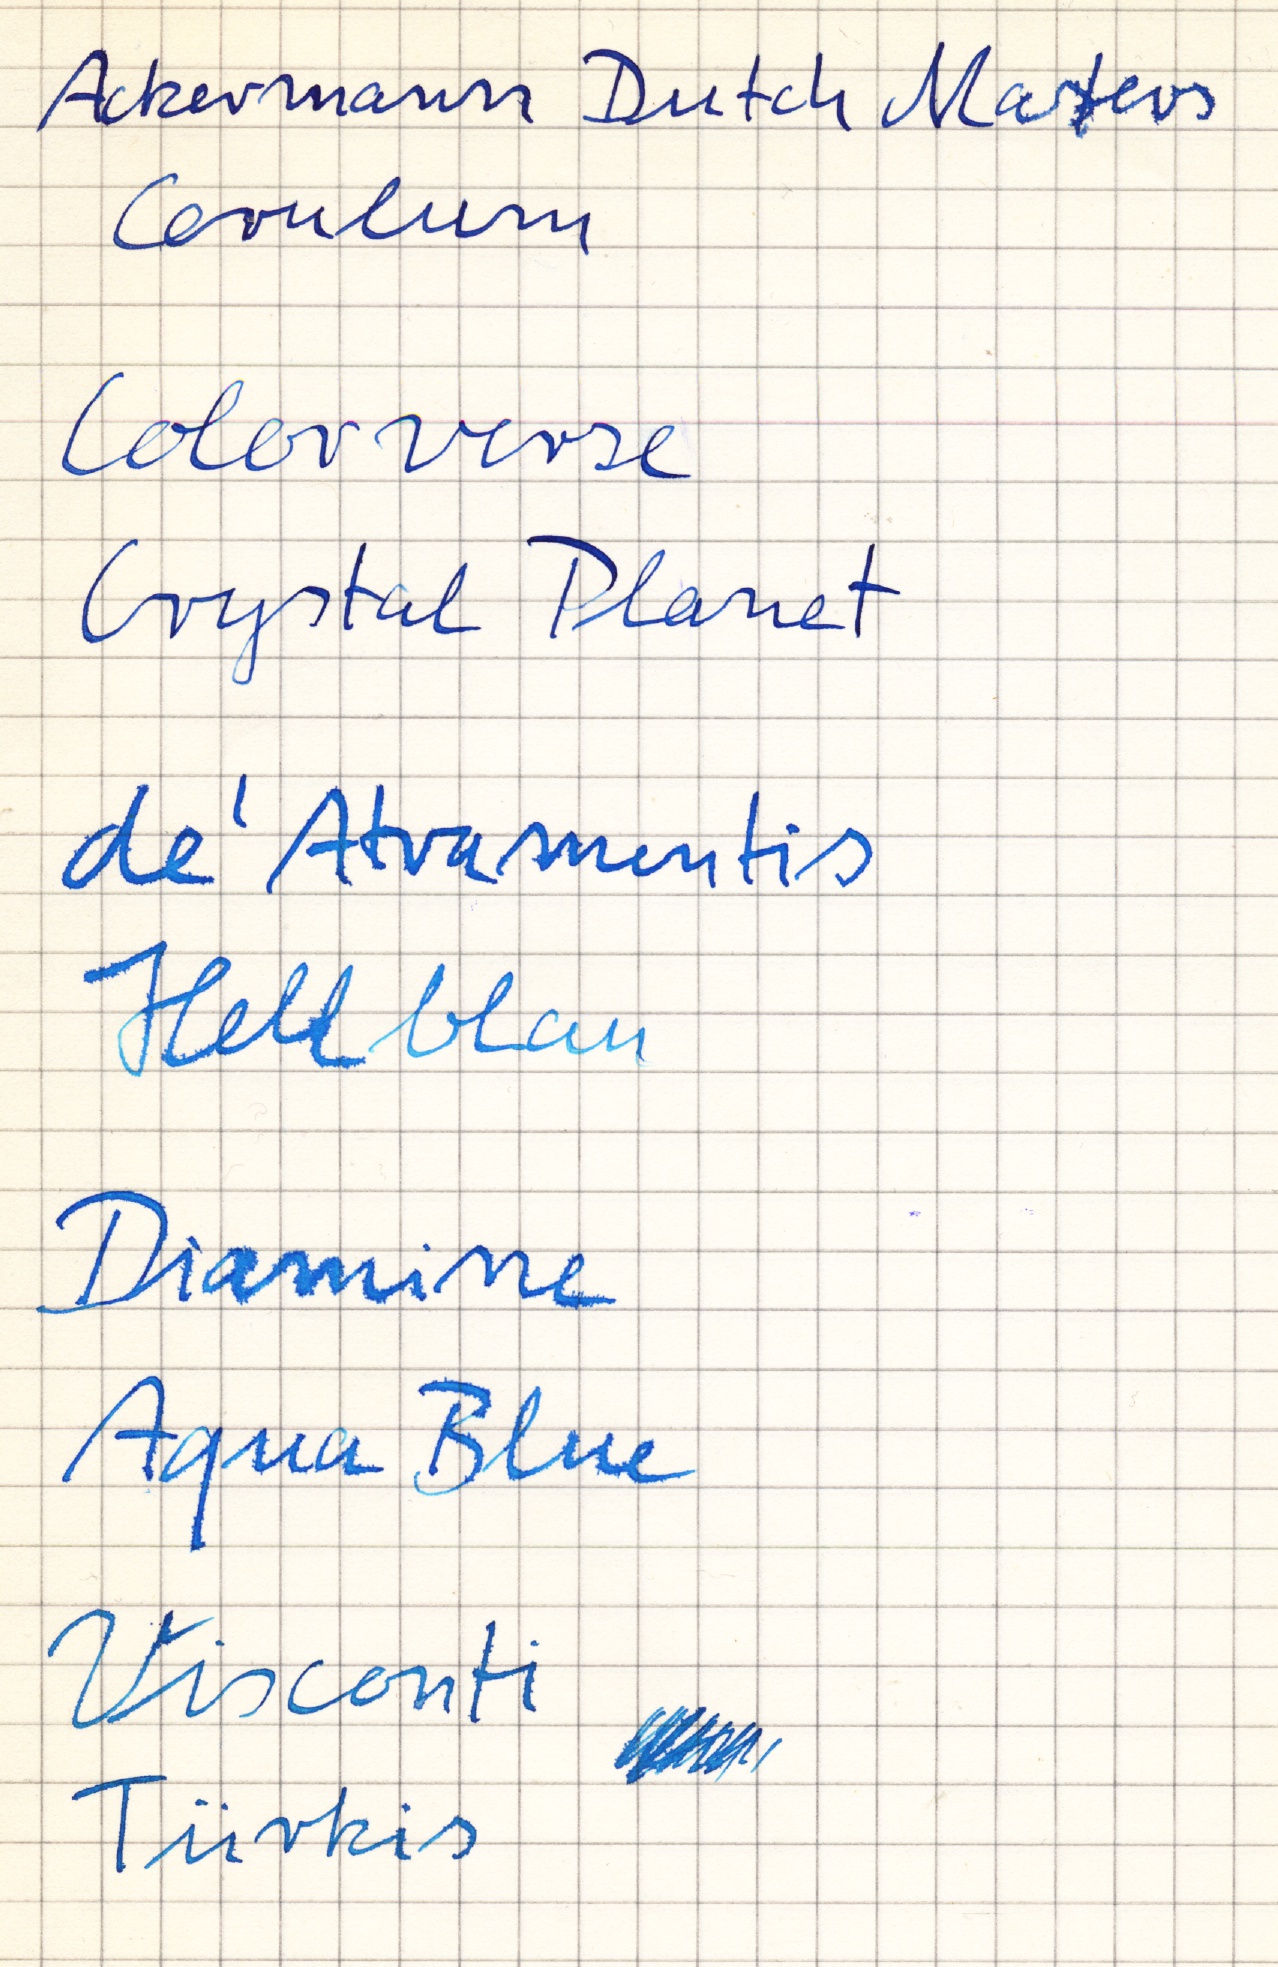 Ackermann Dutch Masters
Cerulum
Colorverse
Crystal Planet
de' Atramentis
Hellblau
Diamine
Aqua Blue
Visconti
Türkis